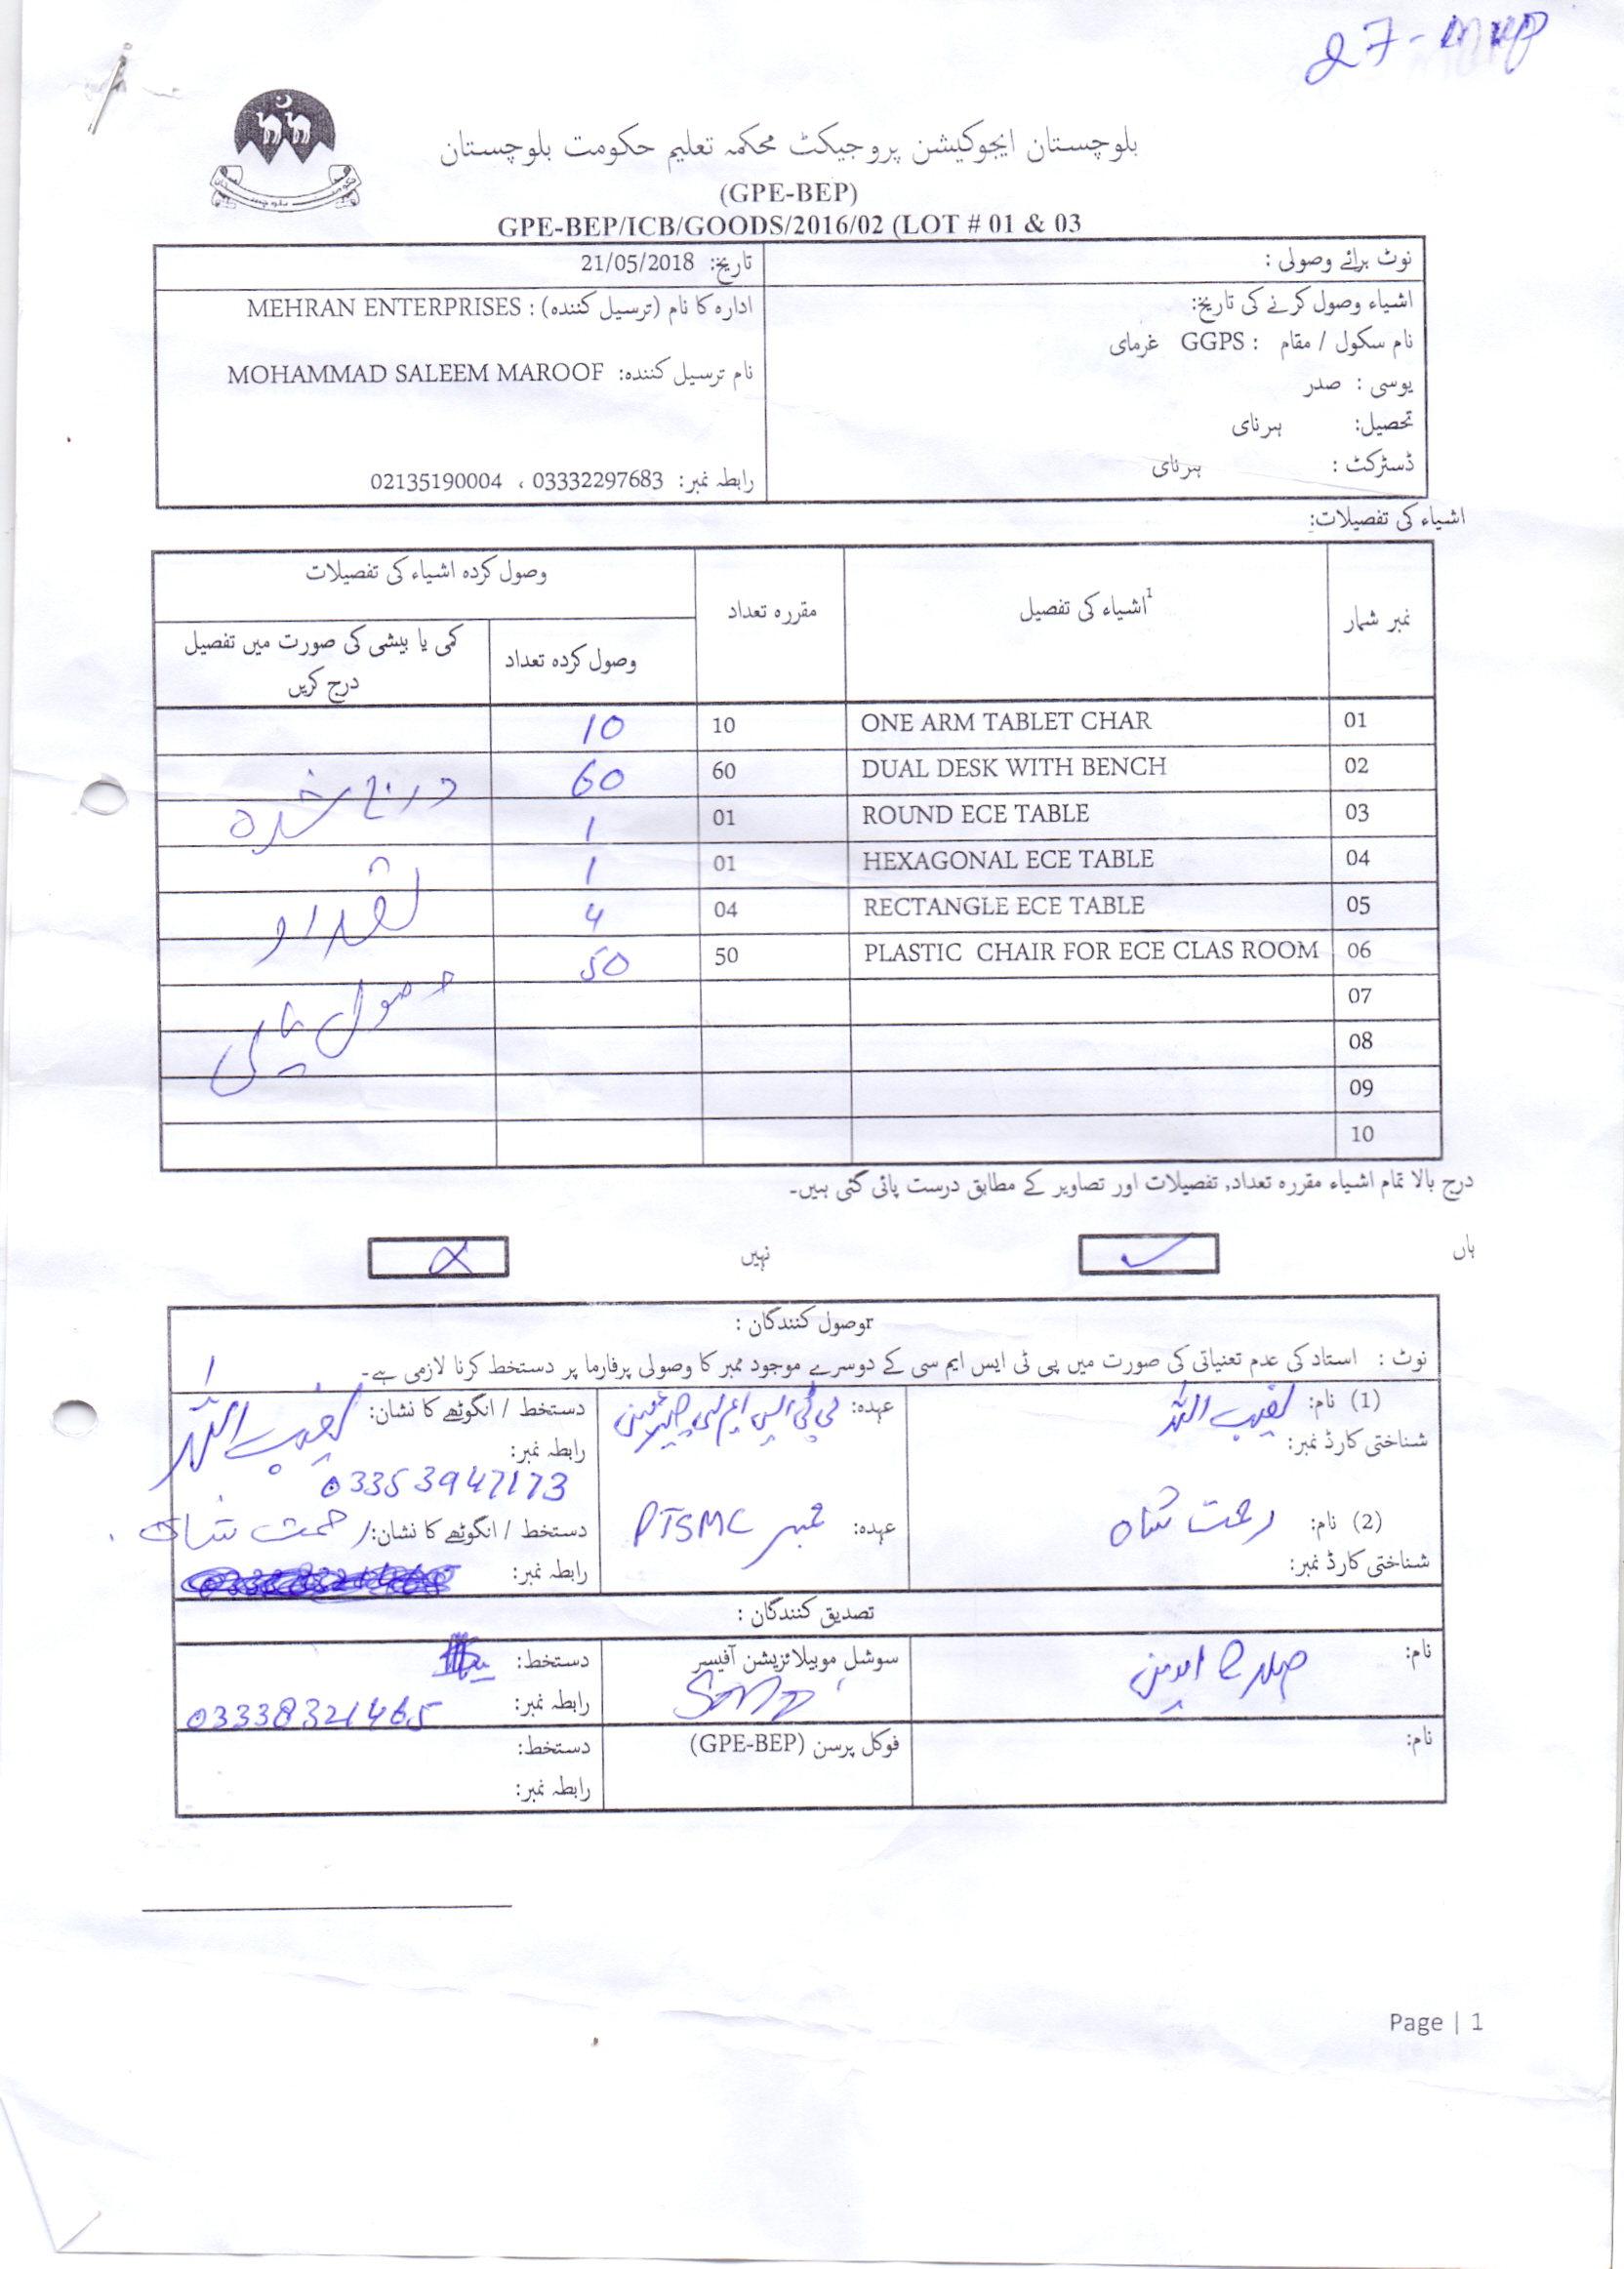 27-
بلوچستان ایجوکیشن پروجیکٹ محکمہ تعلیم حکومت بلوچستان
(GPE-BEP)
GPE-BEP/ICB/GOODS/2016/02 (LOT # 01 & 03
نوٹ برائے وصولی :
تاریخ: 21/05/2018
اشیاء وصول کرنے کی تاریخ:
ادارہ کا نام (ترسیل کنندہ) : MEHRAN ENTERPRISES
نام سکول / مقام : GGPS غرمای
نام ترسیل کنندہ: MOHAMMAD SALEEM MAROOF
یوسی : صدر
تحصیل: ہرنای
ڈسٹرکٹ : ہرنای
رابطہ نمبر: 03332297683 ، 02135190004
اشیاء کی تفصیلات:
نمبر شمار اشیاء کی تفصیل1 مقررہ تعداد وصول کردہ اشیاء کی تفصیلات
وصول کردہ تعداد کمی یا بیشی کی صورت میں تفصیل
درج کریں
01 ONE ARM TABLET CHAR 10 10
02 DUAL DESK WITH BENCH 60 60
03 ROUND ECE TABLE 01 1
04 HEXAGONAL ECE TABLE 01 1
05 RECTANGLE ECE TABLE 04 4
06 PLASTIC CHAIR FOR ECE CLAS ROOM 50 50
07
08
09
10
درج شدہ
تعداد
وصول پائی
درج بالا تمام اشیاء مقررہ تعداد, تفصیلات اور تصاویر کے مطابق درست پائی گئی ہیں۔
ہاں ✓ نہیں x
rوصول کنندگان :
نوٹ : استاد کی عدم تعنیاتی کی صورت میں پی ٹی ایس ایم سی کے دوسرے موجود ممبر کا وصولی پرفارما پر دستخط کرنا لازمی ہے۔
(1) نام: نقیب اللہ عہدہ: پی ٹی ایس ایم سی چیئرمین دستخط / انگوٹھے کا نشان: نقیب اللہ
شناختی کارڈ نمبر: رابطہ نمبر:
03353947173
(2) نام: رحمت شاہ عہدہ: ممبر PTSMC دستخط / انگوٹھے کا نشان: رحمت شاہ
شناختی کارڈ نمبر: رابطہ نمبر:
تصدیق کنندگان :
نام: سوشل موبیلائزیشن آفیسر دستخط:
رابطہ نمبر: 03338321465
نام: فوکل پرسن (GPE-BEP) دستخط:
رابطہ نمبر:
Page | 1